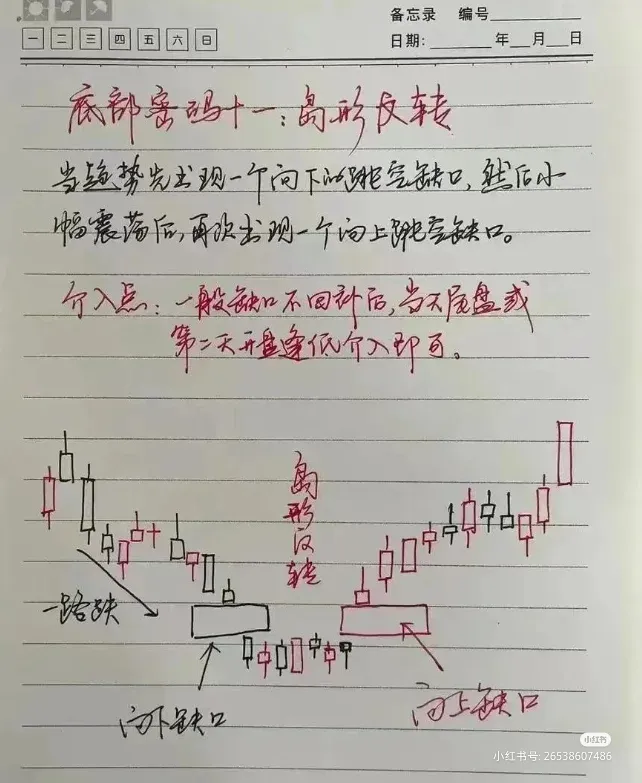 备忘录 编号
一 二 三 四 五 六 日
日期: 年 月 日
底部密码十一：岛形反转
当趋势先出现一个向下的跳空缺口，然后小
幅震荡后，再次出现一个向上跳空缺口。
介入点：一般缺口不回补后，当天尾盘或
第二天开盘逢低介入即可。
岛形反转
一路跌
向下缺口
向上缺口
小红书
小红书号: 26538607486